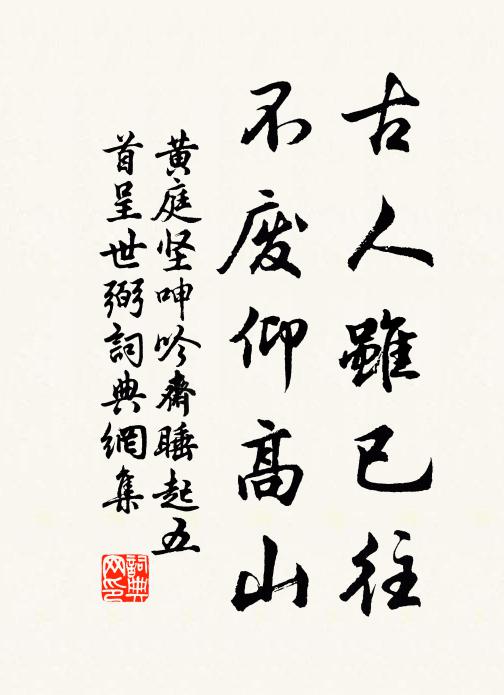 古人雖已往
不废仰高山
黄庭坚呻吟齋睡起五
首呈世弼詞典網集
詞典网印